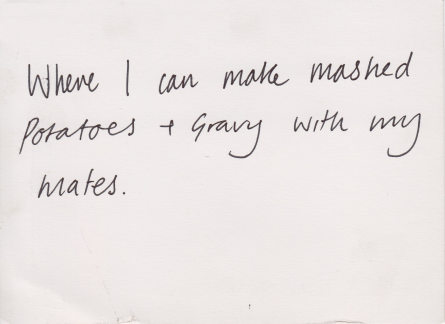 Where I can make mashed
Potatoes + Gravy with my
mates.